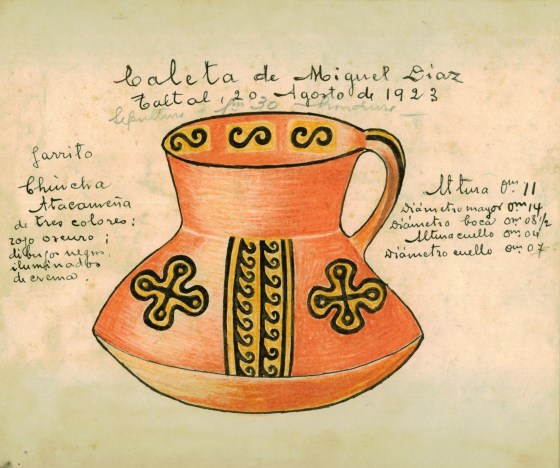 Caleta de Miguel Díaz
Taltal, 20 Agosto de 1923
Sepultura
Jarrito
Chincha
Atacameña
de tres colores:
rojo oscuro;
dibujos negros,
iluminados
de crema.
Altura 0m. 11
Diámetro mayor 0m 14
Diámetro boca 0m 08 1/2
Altura cuello 0m. 04
Diámetro cuello 0m. 07